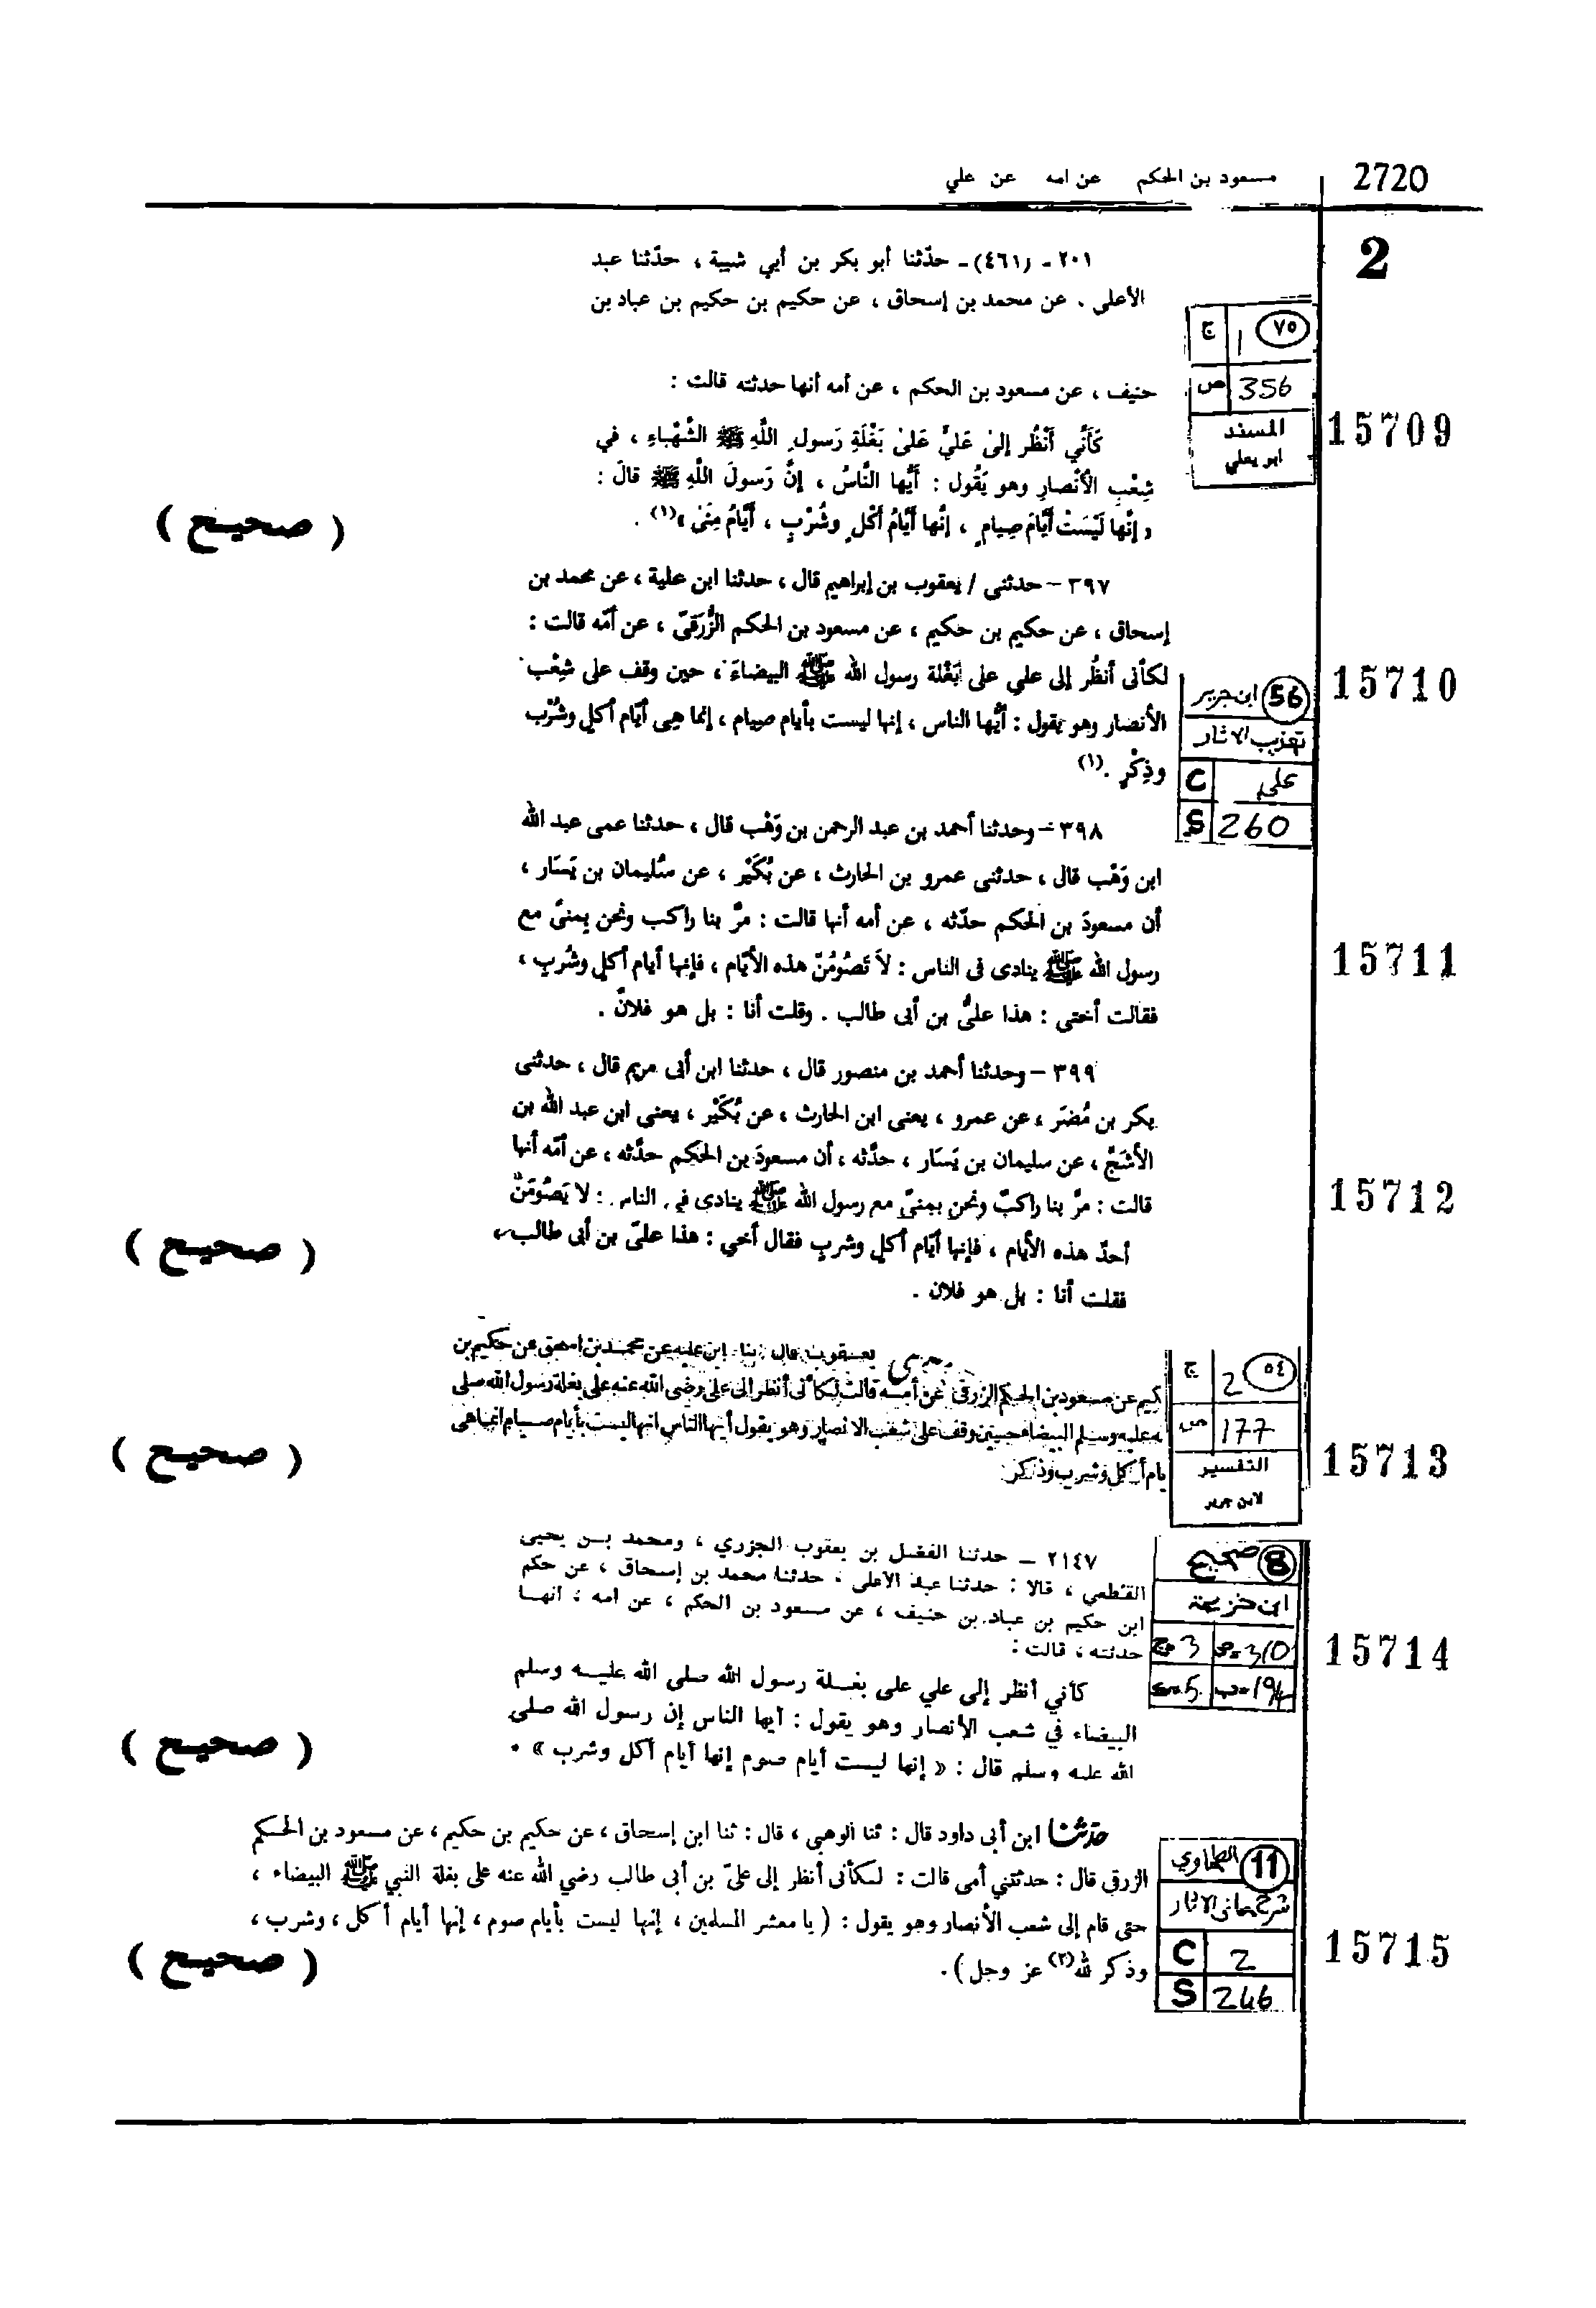 2720
مسعود بن الحكم عن امه عن علي
2
٢٠١ - (٤٦١) - حدّثنا أبو بكر بن أبي شيبة ، حدّثنا عبد
الأعلى . عن محمد بن إسحاق ، عن حكيم بن حكيم بن عباد بن
حنيف ، عن مسعود بن الحكم ، عن أمه أنها حدثته قالت :
كَأَنِّي أَنْظُر إلىٰ عَليٍّ عَلىٰ بَغْلَةِ رَسولِ اللَّهِ ﷺ الشَّهْباءِ ، في
شِعْبِ الأَنْصارِ وهو يَقُول : أَيُّها النَّاسُ ، إنَّ رَسولَ اللَّهِ ﷺ قالَ :
« إنَّها لَيْسَتْ أَيَّامَ صِيامٍ ، إنَّها أَيَّامُ أَكْلٍ وشُرْبٍ ، أَيَّامُ مِنَىٰ »(١) .
٧٥
ج 1
ص 356
المسند
ابو يعلي
15709
( صحيح )
٣٩٧ - حدثنى / يعقوب بن إبراهيم قال ، حدثنا ابن علية ، عن محمد بن
إسحاق ، عن حكيم بن حكيم ، عن مسعود بن الحكم الزُّرَقىّ ، عن أمّه قالت :
لكأنى أنظُر إلى علي على بَغْلة رسول الله ﷺ البيضاءَ ، حين وقف على شِعْب
الأنصار وهو يقول : أيُّها الناس ، إنها ليست بأيام صيام ، إنما هِى أيّام أكلٍ وشُرْب
وذِكْرٍ .(١)
56 ابن جرير
تهذيب الاثار
علي
C
S 260
15710
٣٩٨ - وحدثنا أحمد بن عبد الرحمن بن وَهْب قال ، حدثنا عمى عبد الله
ابن وَهْب قال ، حدثنى عمرو بن الحارث ، عن بُكَيْر ، عن سُليمان بن يَسَار ،
أن مسعودَ بن الحكم حدّثه ، عن أمه أنها قالت : مرَّ بنا راكب ونحن بمنىً مع
رسول الله ﷺ ينادى فى الناس : لاَ تَصُومُنّ هذه الأيّام ، فإنها أيام أكلٍ وشُربٍ ،
فقالت أختى : هذا علىُّ بن أبى طالب . وقلت أنا : بل هو فلانٌ .
15711
٣٩٩ - وحدثنا أحمد بن منصور قال ، حدثنا ابن أبى مريم قال ، حدثنى
بكر بن مُضَر ، عن عمرو ، يعنى ابن الحارث ، عن بُكَيْر ، يعنى ابن عبد الله بن
الأشَجّ ، عن سليمان بن يَسَار ، حدّثه ، أن مسعودَ بن الحكم حدّثه ، عن أمّه أنها
قالت : مرَّ بنا راكبٌ ونحن بمنىً مع رسول الله ﷺ ينادى فى الناس : لا يَصُومَنَّ
أحدٌ هذه الأيام ، فإنها أيّام أكلٍ وشربٍ فقال أخى : هذا علىّ بن أبى طالب ،
فقلت أنا : بل هو فلان .
15712
( صحيح )
يعقوب قال ثنا ابن علية عن محمد بن اسحق عن حكيم بن
كيم عن مسعود بن الحكم الزرقى عن أمه قالت لكأنى أنظر الى على رضى الله عنه على بغلة رسول الله صلى
له عليه وسلم البيضاء حين وقف على شعب الانصار وهو يقول أيها الناس انها ليست بأيام صيام انما هى
يام أكل وشرب وذكر
٥٤
ج 2
ص 177
التفسير
لابن جرير
15713
( صحيح )
٢١٤٧ - حدثنا الفضل بن يعقوب الجزري ، ومحمد بن يحيى
القطعي ، قالا : حدثنا عبد الأعلى ، حدثنا محمد بن إسحاق ، عن حكم
ابن حكيم بن عباد بن حنيف ، عن مسعود بن الحكم ، عن امه ؛ انها
حدثته ، قالت :
كأني أنظر إلى علي على بغلة رسول الله صلى الله عليه وسلم
البيضاء في شعب الأنصار وهو يقول : أيها الناس إن رسول الله صلى
الله عليه وسلم قال : « إنها ليست أيام صوم إنها أيام أكل وشرب » .
8 صحيح
ابن خزيمة
ص=310 ج 3
ب=194
15714
( صحيح )
حدثنا ابن أبى داود قال : ثنا الوهبى ، قال : ثنا ابن إسحاق ، عن حكيم بن حكيم ، عن مسعود بن الحكم
الزرقى قال : حدثتني أمى قالت : لكأنى أنظر إلى علىّ بن أبى طالب رضي الله عنه على بغلة النبي ﷺ البيضاء ،
حتى قام إلى شعب الأنصار وهو يقول : ( يا معشر المسلمين ، إنها ليست بأيام صوم ، إنها أيام أكل ، وشرب ،
وذكر لله(٢) عز وجل ) .
11 الطحاوي
شرح معاني الاثار
C 2
S 246
15715
( صحيح )